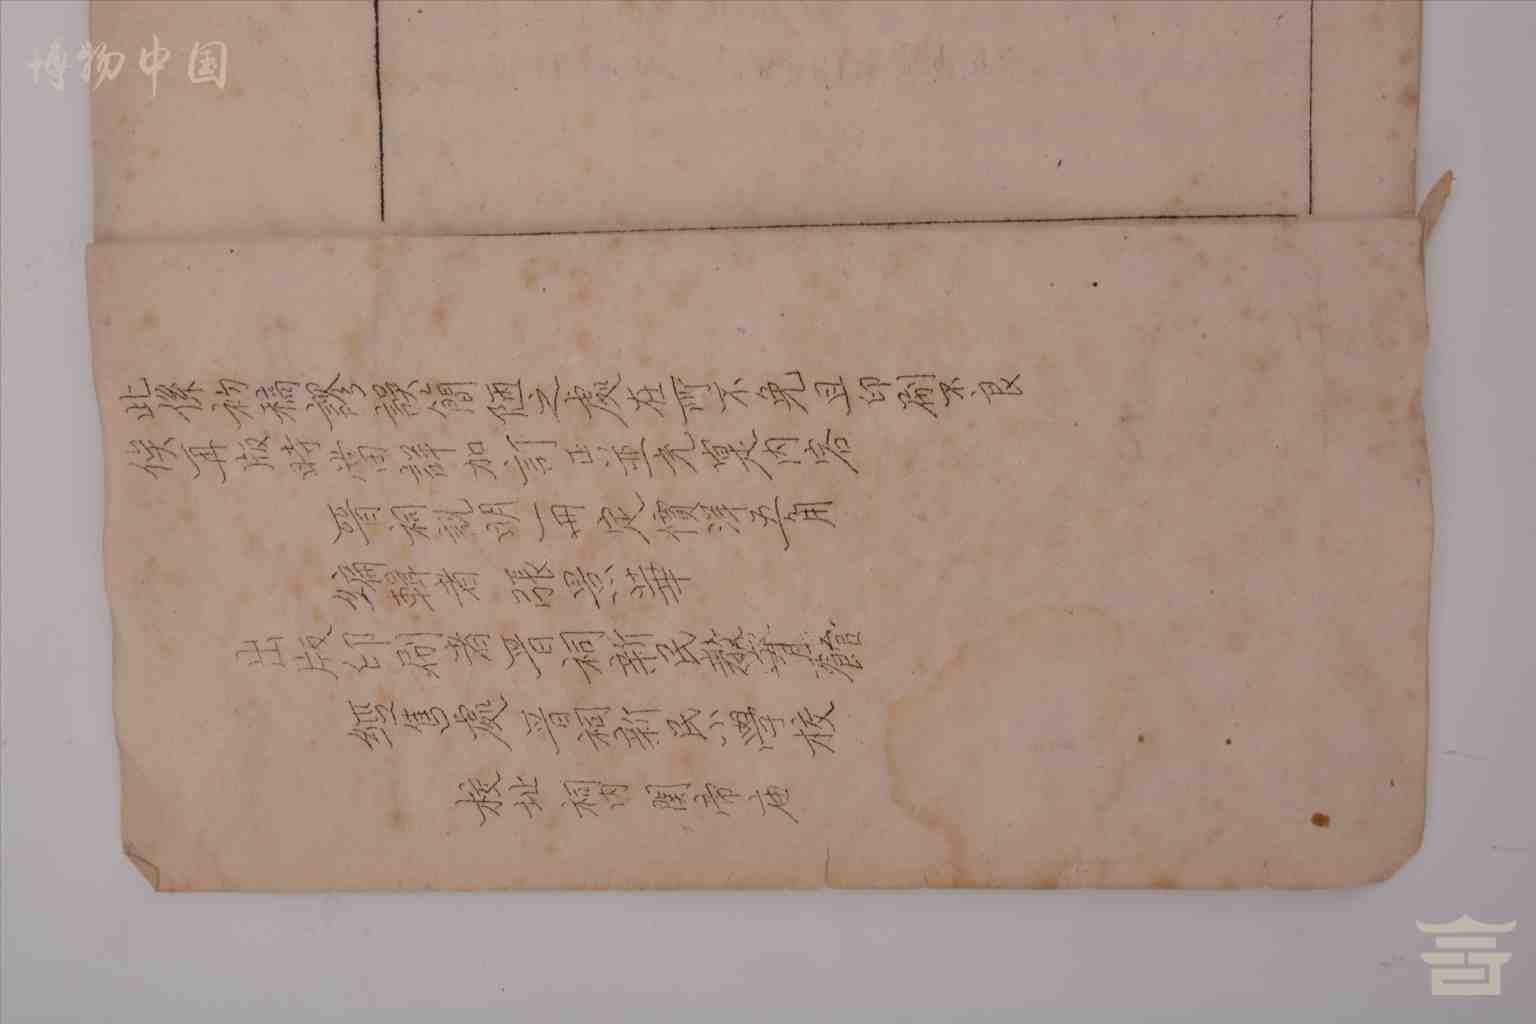 博物中国
此係初稿謬誤簡陋之處在所不免且印刷不良
俟再版時當詳加訂正並充實内容
晋祠説明一册定價洋五角
編輯者 張景華
出版印刷者晋祠新民教育館
經售處 晋祠新民小學校
校址 祠内關帝庙